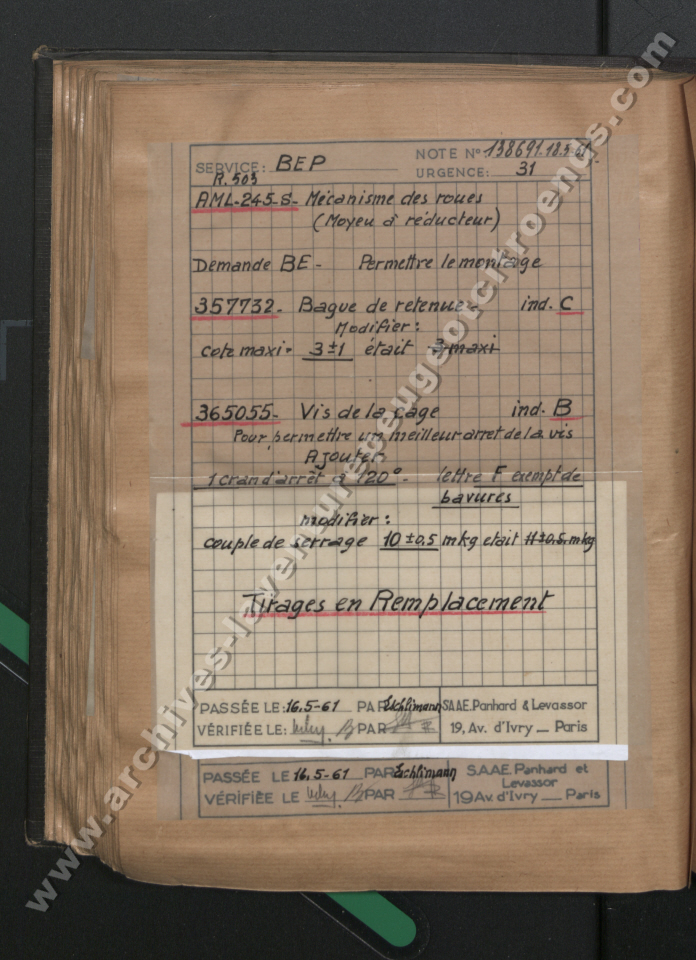 SERVICE: BEP
NOTE N° 138691.18.5.61
R.503
URGENCE: 31
AML-245-S- Mécanisme des roues
(Moyeu à réducteur)
Demande BE - Permettre le montage
357732- Bague de retenue- ind. C
Modifier:
cote maxi- 3±1 était 3 maxi
365055- Vis de la cage ind. B
Pour permettre un meilleur arret de la vis
Ajouter
1 cran d'arrêt à 120°- lettre F exempt de
bavures
modifier:
couple de serrage 10±0,5 mkg etait 11±0,5 mkg
Tirages en Remplacement
PASSÉE LE: 16.5-61 PAR SAAE. Panhard & Levassor
VÉRIFIÉE LE: PAR 19, Av. d'Ivry _ Paris
PASSÉE LE 16.5-61 PAR S.A.A.E. Panhard et
Levassor
VÉRIFIÉE LE PAR 19 Av. d'Ivry _ Paris
www.archives-laventurepeugeotcitroends.com